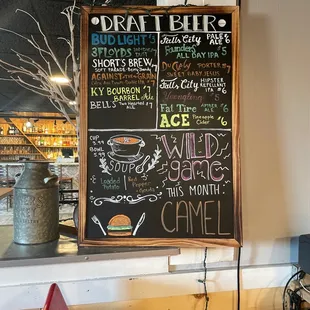 DRAFT BEER
BUD LIGHT $3
3FLOYDS
SHORT'S BREW
SOFT PARADE
AGAINST THE GRAIN
KY BOURBON $7
BARREL Ale
BELLS Two Hearted
Falls City PALE ALE $6
Founders $5
ALL DAY IPA
DuClaw PORTER $7
SWEET BABY JESUS
Falls City HIPSTER
REPELLANT
IPA $6
Yuengling $3
Fat Tire AMBER ALE $6
ACE Pineapple
Cider
CUP
3.99
BOWL
5.99
SOUPS
Loaded
Potato
Red
Pepper
Gouda
WILD
game
THIS MONTH:
CAMEL